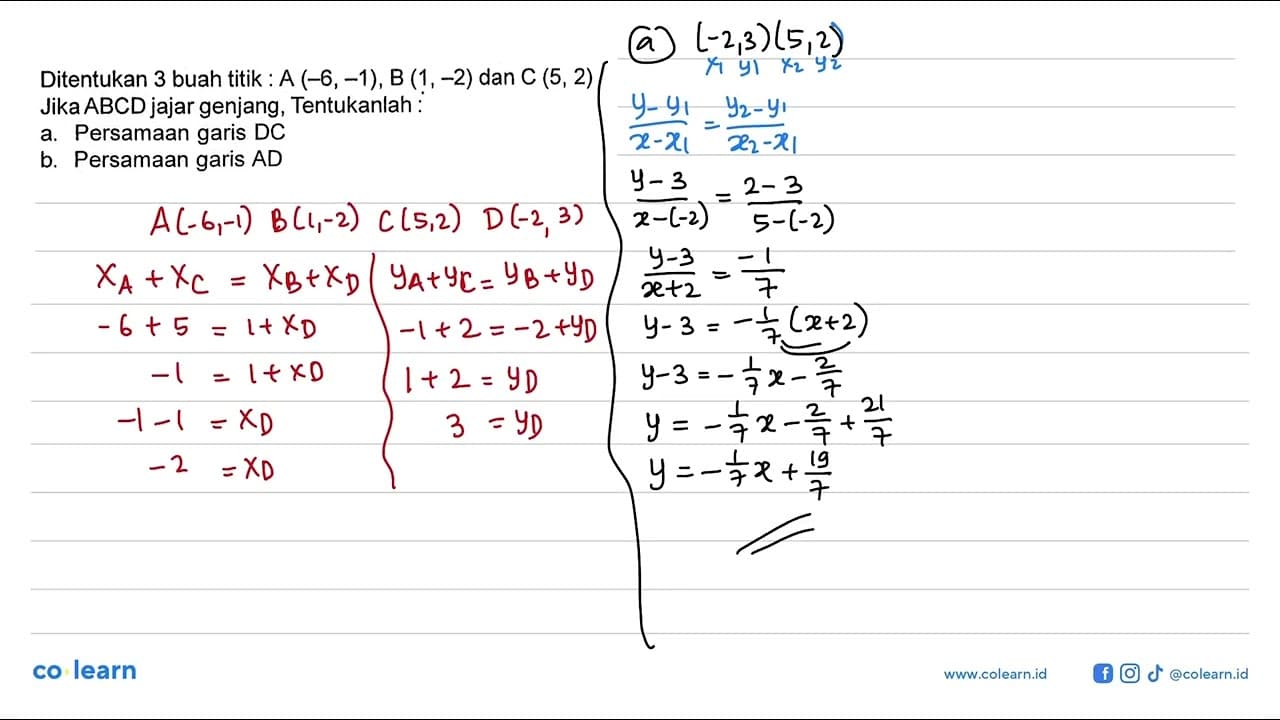 Ditentukan 3 buah titik : A (–6, –1), B (1, –2) dan C (5, 2)
Jika ABCD jajar genjang, Tentukanlah :
a. Persamaan garis DC
b. Persamaan garis AD
A(-6,-1) B(1,-2) C(5,2) D(-2,3)
XA + XC = XB + XD
-6 + 5 = 1 + XD
-1 = 1 + XD
-1 - 1 = XD
-2 = XD
yA + yC = yB + yD
-1 + 2 = -2 + yD
1 + 2 = yD
3 = yD
a (-2,3) (5,2)
x1 y1 x2 y2
y - y1 / x - x1 = y2 - y1 / x2 - x1
y - 3 / x - (-2) = 2 - 3 / 5 - (-2)
y - 3 / x + 2 = -1 / 7
y - 3 = - 1/7 (x + 2)
y - 3 = - 1/7 x - 2/7
y = - 1/7 x - 2/7 + 21/7
y = - 1/7 x + 19/7
co learn
www.colearn.id
@colearn.id